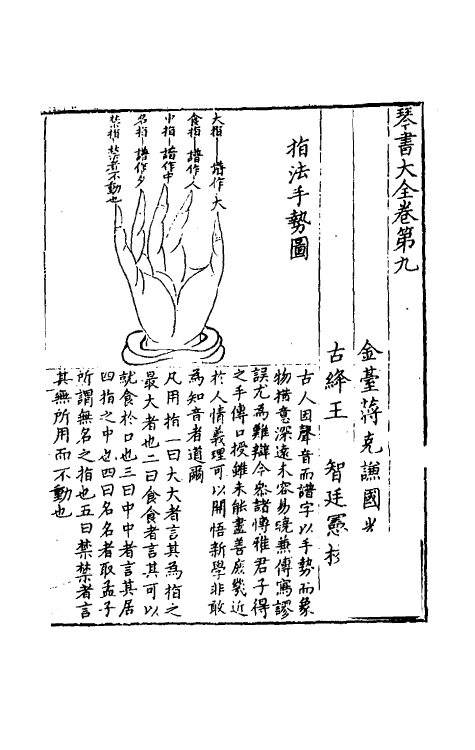 琴書大全卷第九
金臺蔣克謙國
古絳王 智廷憲
指法手勢圖
大指譜作大
食指譜作人
中指譜作中
名指譜作夕
禁指禁者不動也
古人因聲音而譜字以手勢而象
物措意深遠未容易曉兼傳寫謬
誤尤為難辯今叅諸愽雅君子得
之手傳口授雖未能盡善庶幾近
於人情義理可以開悟新學非敢
為知音者道爾
凡用指一曰大大者言其為指之
最大者也二曰食食者言其可以
就食於口也三曰中中者言其居
四指之中也四曰名名者取孟子
所謂無名之指也五曰禁禁者言
其無所用而不動也